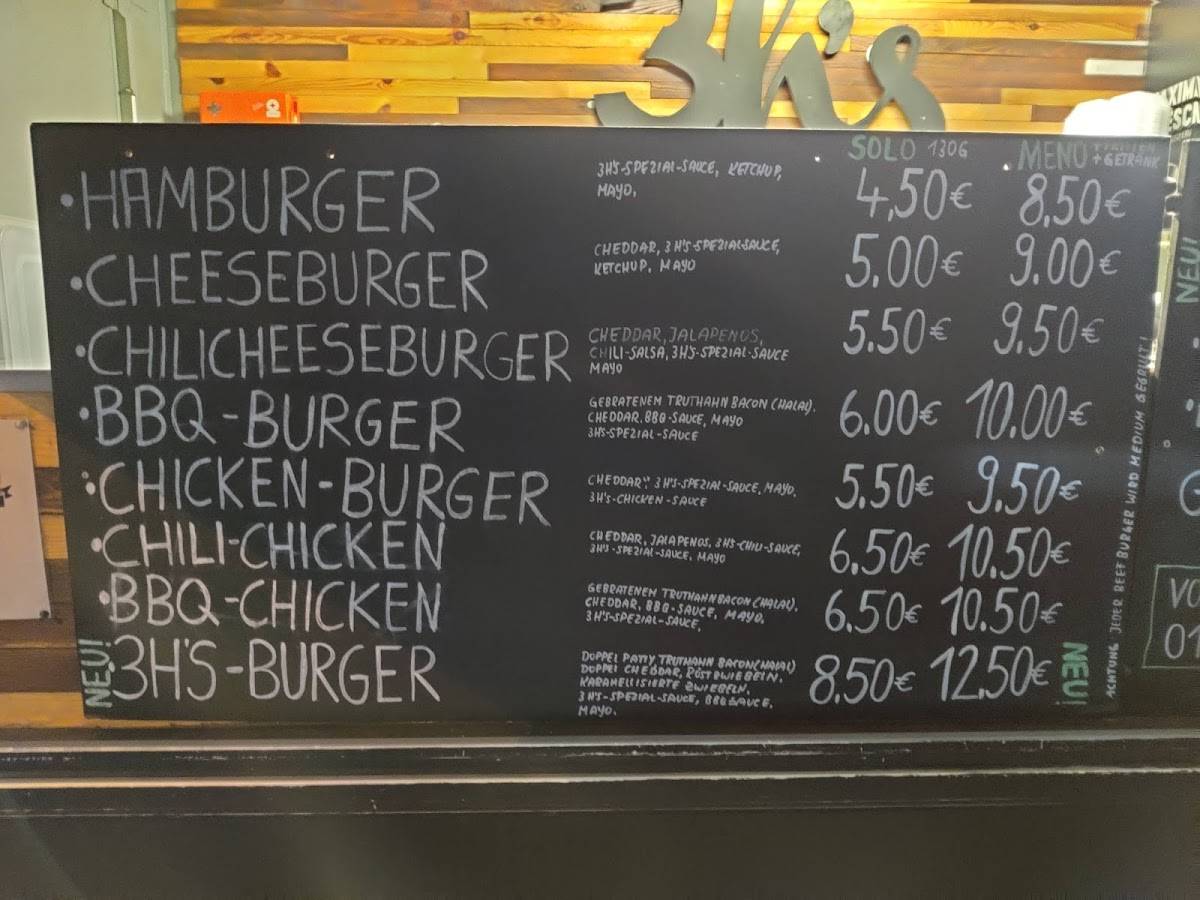 3h's
SOLO 130G MENÜ + GETRÄNK
• HAMBURGER 3H'S-SPEZIAL-SAUCE, KETCHUP, 4,50€ 8,50€
MAYO,
• CHEESEBURGER CHEDDAR, 3H'S-SPEZIAL-SAUCE, 5.00€ 9.00€
KETCHUP, MAYO
• CHILICHEESEBURGER CHEDDAR, JALAPENOS, 5.50€ 9.50€
CHILI-SALSA, 3H'S-SPEZIAL-SAUCE
MAYO
• BBQ-BURGER GEBRATENEM TRUTHAHN BACON (HALAL), 6.00€ 10.00€
CHEDDAR, BBQ-SAUCE, MAYO
3H'S-SPEZIAL-SAUCE
• CHICKEN-BURGER CHEDDAR, 3H'S-SPEZIAL-SAUCE, MAYO, 5.50€ 9.50€
3H'S-CHICKEN-SAUCE
• CHILI-CHICKEN CHEDDAR, JALAPENOS, 3H'S-CHILI-SAUCE, 6.50€ 10.50€
3H'S-SPEZIAL-SAUCE, MAYO
• BBQ-CHICKEN GEBRATENEM TRUTHAHN BACON (HALAL), 6.50€ 10.50€
CHEDDAR, BBQ-SAUCE, MAYO,
3H'S-SPEZIAL-SAUCE,
NEU! 3H'S-BURGER DOPPEL PATTY TRUTHAHN BACON (HALAL) 8.50€ 12.50€ NEU!
DOPPEL CHEDDAR, RÖSTZWIEBELN,
KARAMELLISIERTE ZWIEBELN,
3H'S-SPEZIAL-SAUCE, BBQ SAUCE,
MAYO.
ACHTUNG JEDER BEEF BURGER WIRD MEDIUM GEGRILLT!
NEU
VO
01